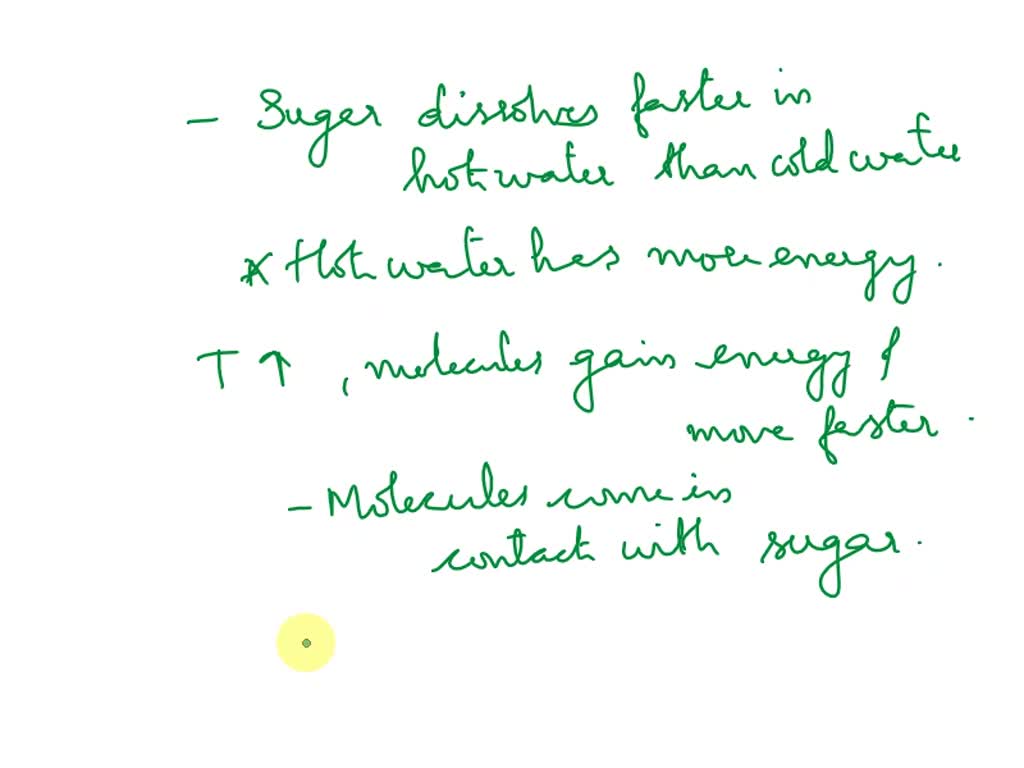 - Sugar dissolves faster in
hot water than cold water
* Hot water has more energy.
T ↑, molecules gain energy &
move faster.
- Molecules come in
contact with sugar.